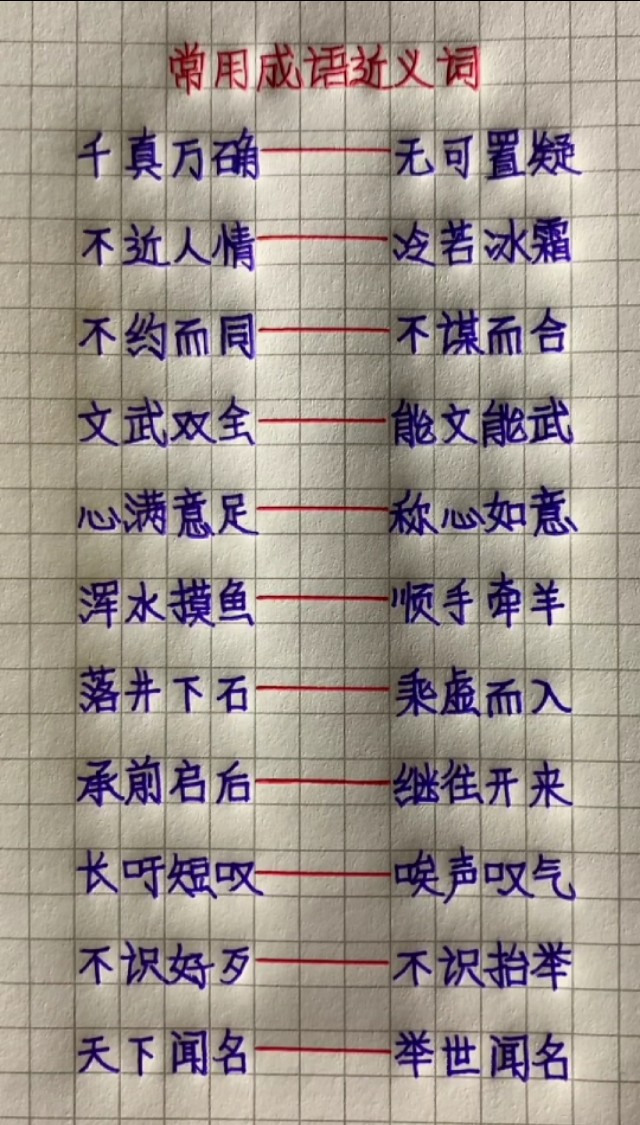 常用成语近义词
千真万确——无可置疑
不近人情——冷若冰霜
不约而同——不谋而合
文武双全——能文能武
心满意足——称心如意
浑水摸鱼——顺手牵羊
落井下石——乘虚而入
承前启后——继往开来
长吁短叹——唉声叹气
不识好歹——不识抬举
天下闻名——举世闻名